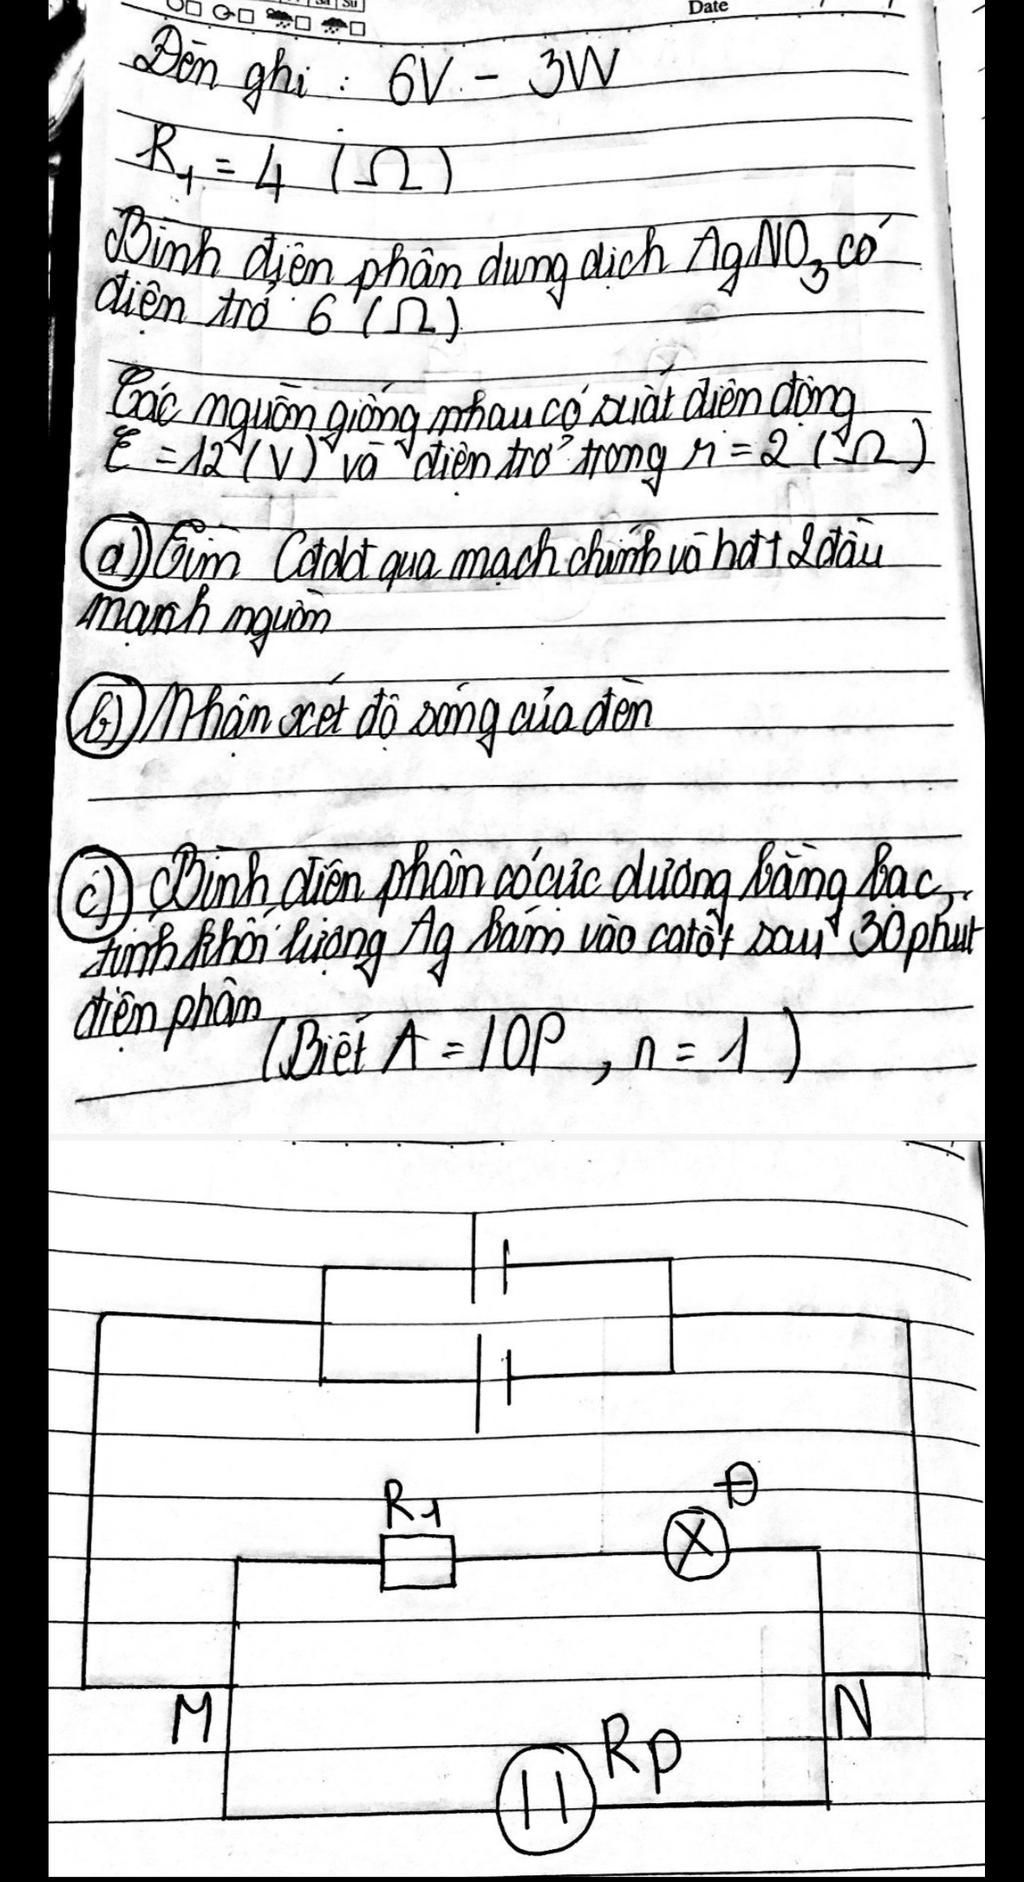 Sa Su
Date
Đèn ghi : 6V - 3W
R1 = 4 (Ω)
Bình điện phân dung dịch AgNO3 có
điện trở 6 (Ω)
Các nguồn giống nhau có suất điện động
ξ = 12 (V) và điện trở trong r = 2 (Ω)
a) Tìm Cđdđ qua mạch chính và hđt 2 đầu
mạch nguồn
b) Nhận xét độ sáng của đèn
c) Bình điện phân có cực dương bằng bạc,
tính khối lượng Ag bám vào catốt sau 30 phút
điện phân
(Biết A = 108, n = 1)
R1
Đ
M
N
Rp